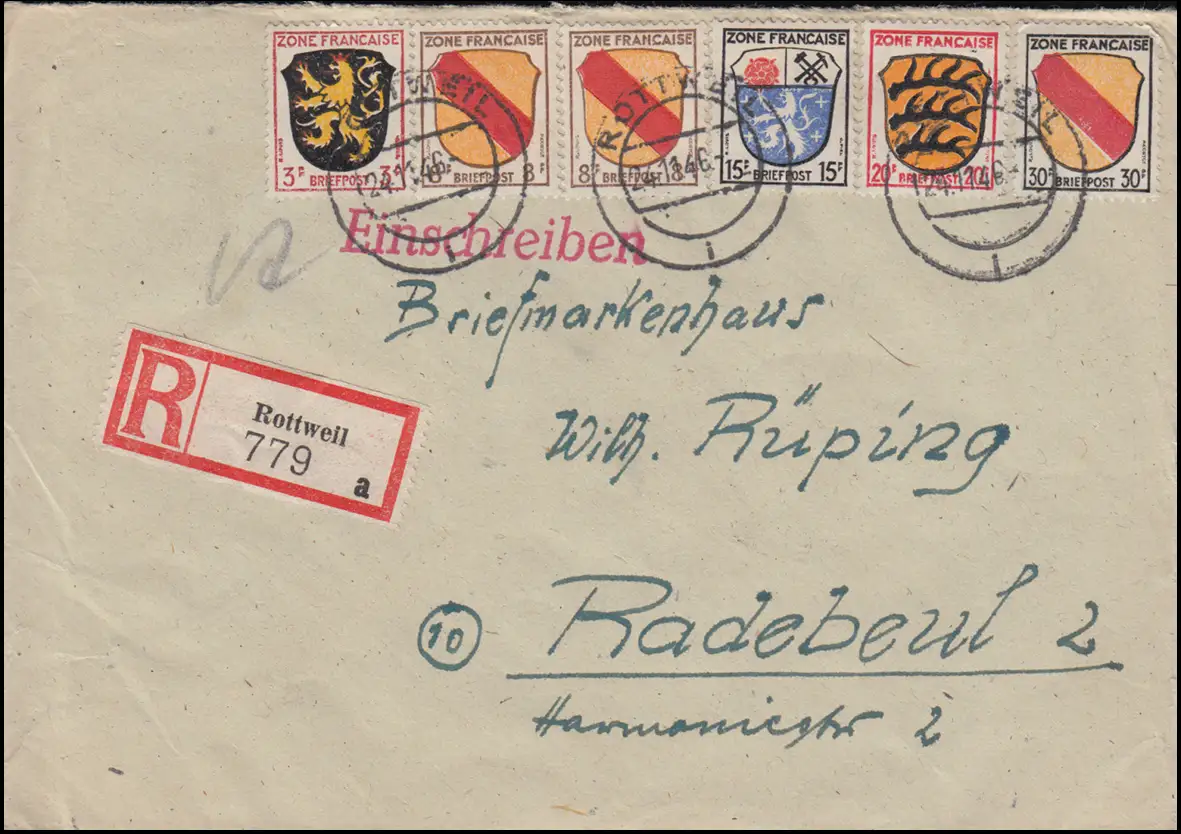 ZONE FRANCAISE ZONE FRANCAISE ZONE FRANCAISE ZONE FRANCAISE ZONE FRANCAISE ZONE FRANCAISE
3F BRIEFPOST 3F BRIEFPOST 8F 8F BRIEFPOST 15F BRIEFPOST 15F 20F BRIEFPOST 20F 30F BRIEFPOST 30F
ROTTWEIL ROTTWEIL
24.11.46.- 24.11.46.-
i i i
Einschreiben
Briefmarkenhaus
Wilh. Rüping
R Rottweil
779
a
10 Radebeul 2
Harmoniestr 2